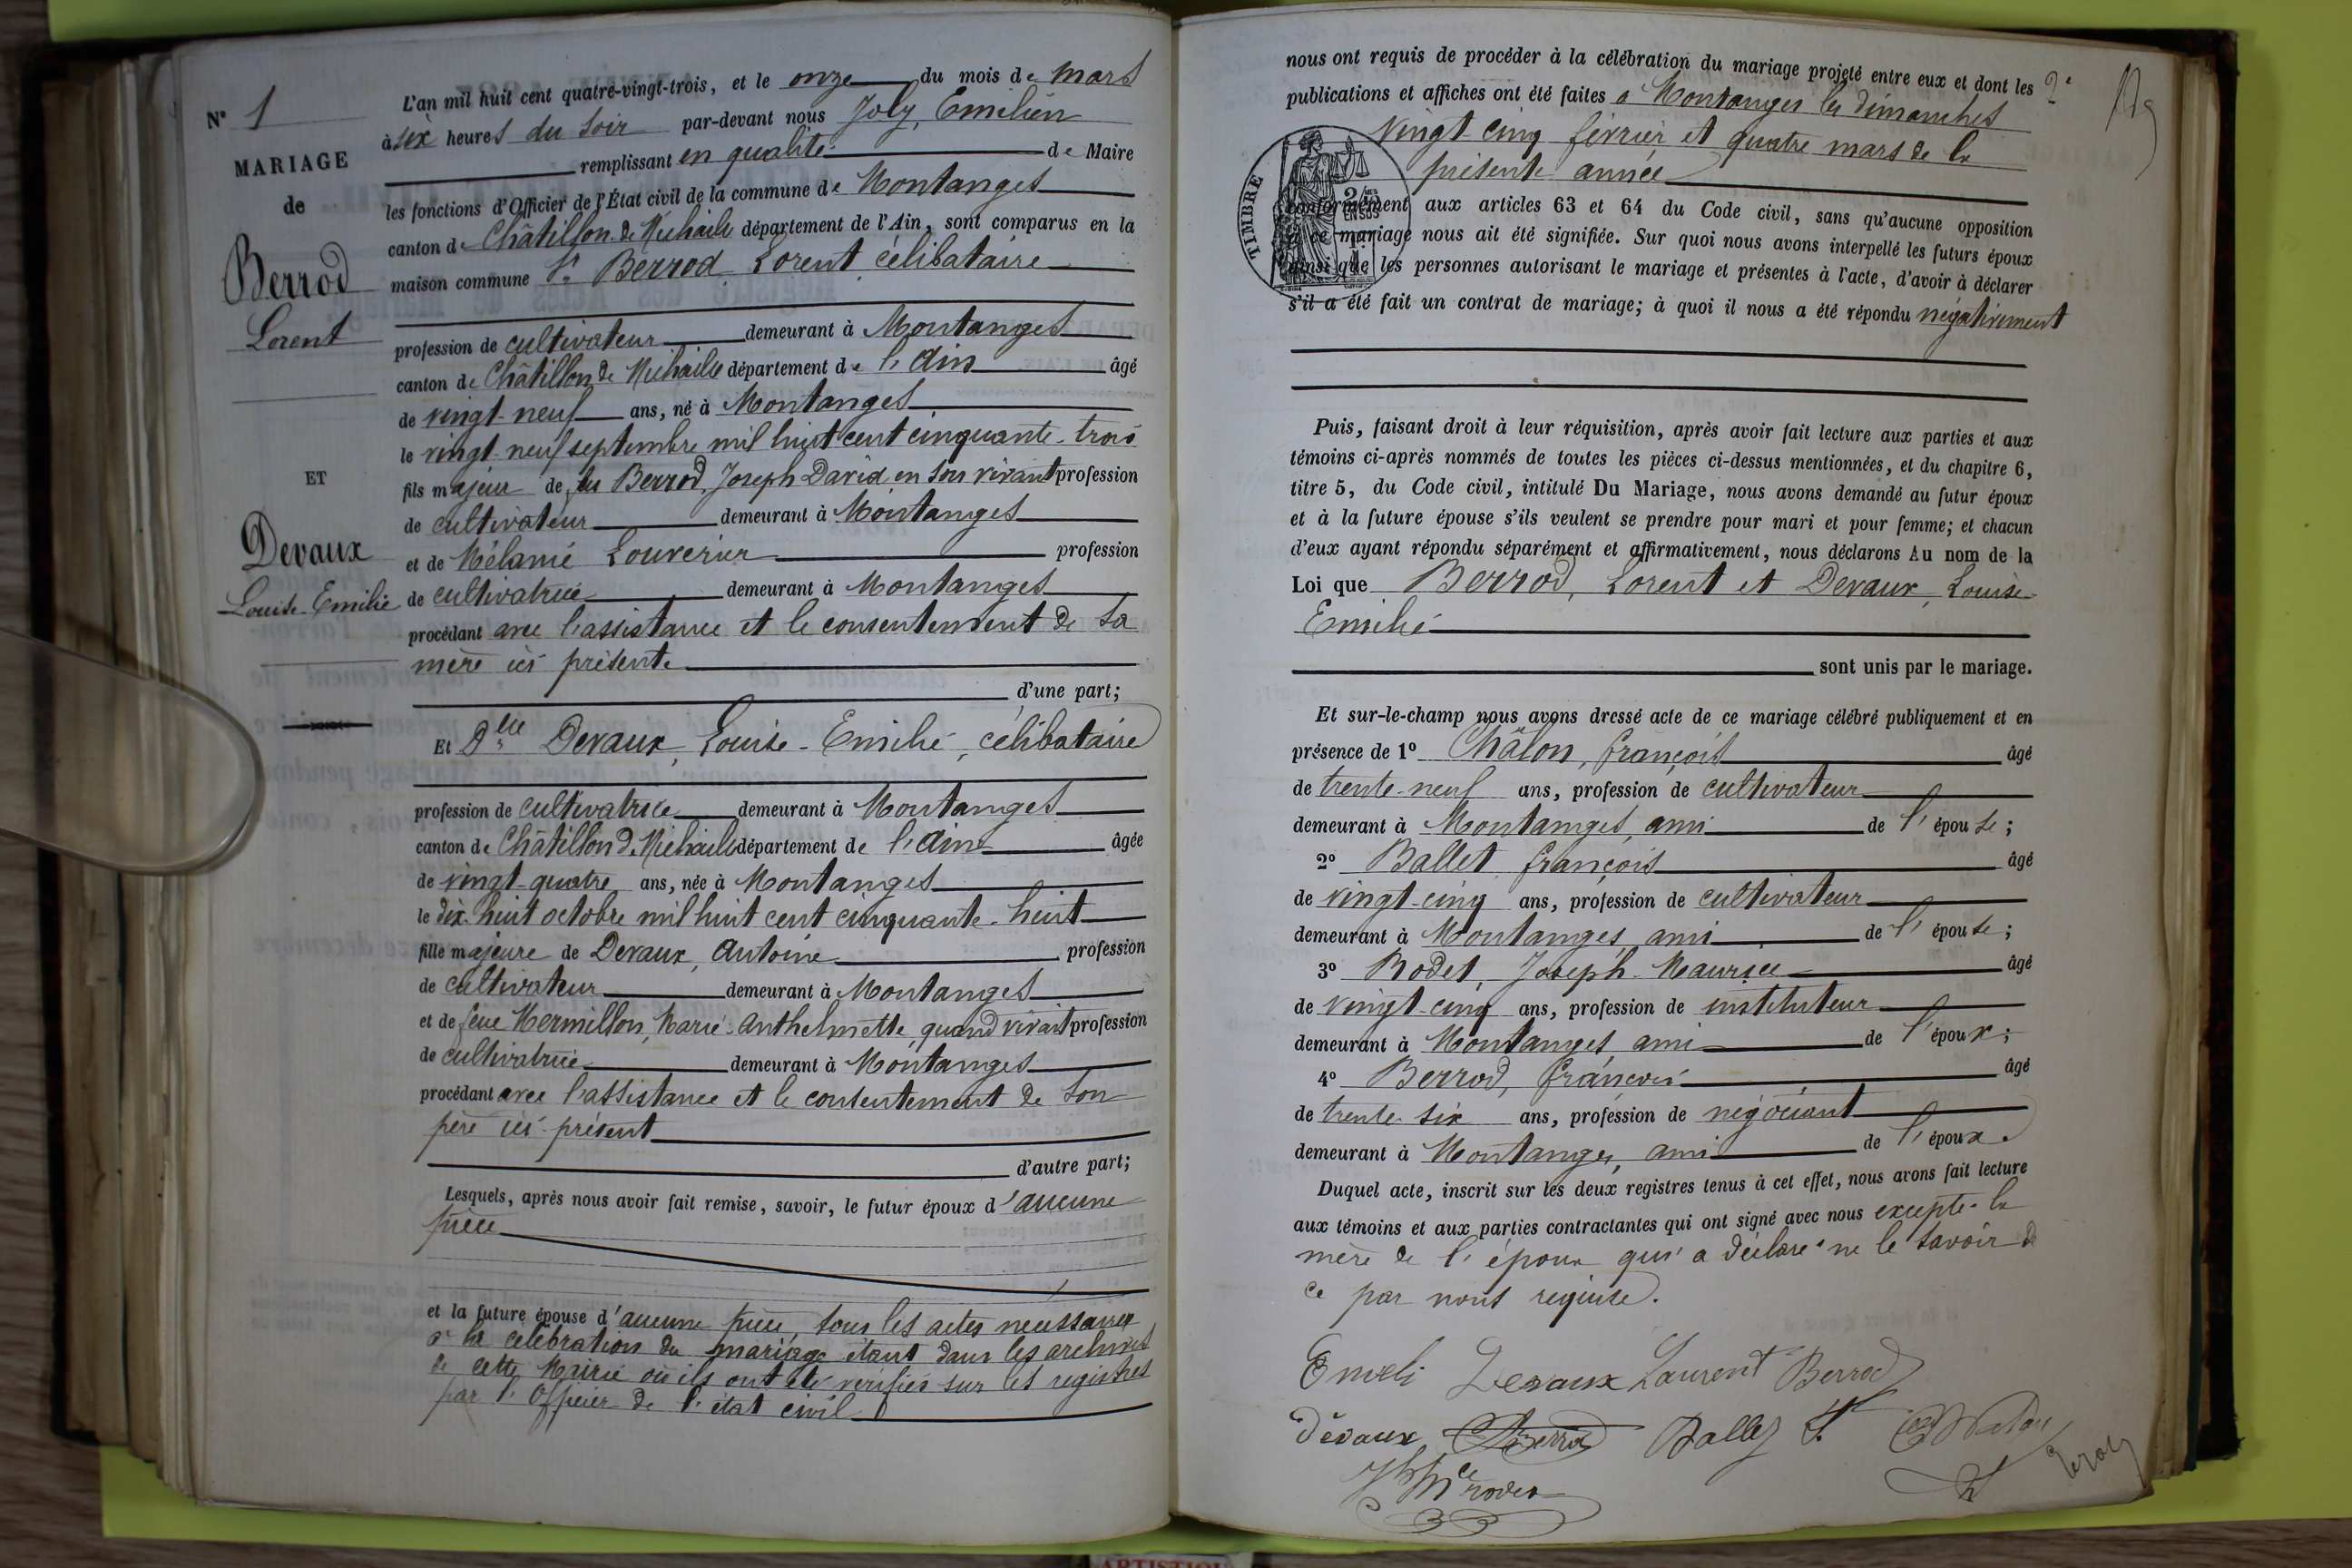 N° 1
MARIAGE
de
Berrod
Lorent
ET
Devaux
Louise-Emilie
L'an mil huit cent quatre-vingt-trois, et le onze du mois de Mars
à six heures du soir par-devant nous Joly, Emilien
remplissant en qualité de Maire
les fonctions d'Officier de l'État civil de la commune de Montanges
canton de Châtillon de Michaille département de l'Ain, sont comparus en la
maison commune Sr Berrod Lorent célibataire
profession de cultivateur demeurant à Montanges
canton de Châtillon de Michaille département de l'Ain âgé
de vingt-neuf ans, né à Montanges
le vingt-neuf septembre mil huit cent cinquante-trois
fils majeur de feu Berrod, Joseph David en son vivant profession
de cultivateur demeurant à Montanges
et de Mélanie Louvrier profession
de cultivatrice demeurant à Montanges
procédant avec l'assistance et le consentement de sa
mère ici présente
d'une part;
Et Dlle Devaux, Louise-Emilie, célibataire
profession de cultivatrice demeurant à Montanges
canton de Châtillon de Michaille département de l'Ain âgée
de vingt-quatre ans, née à Montanges
le dix-huit octobre mil huit cent cinquante-huit
fille majeure de Devaux, Antoine profession
de cultivateur demeurant à Montanges
et de feue Mermillon, Marie-Anthelmette, quand vivait profession
de cultivatrice demeurant à Montanges
procédant avec l'assistance et le consentement de son
père ici présent
d'autre part;
Lesquels, après nous avoir fait remise, savoir, le futur époux d'aucune
pièce
et la future épouse d'aucune pièce, tous les actes nécessaires
à la célébration du mariage étant dans les archives
de cette Mairie où ils ont été vérifiés sur les registres
par l'Officier de l'état civil
nous ont requis de procéder à la célébration du mariage projeté entre eux et dont les
publications et affiches ont été faites à Montanges les dimanches
vingt cinq février et quatre mars de la
présente année
TIMBRE
conformément aux articles 63 et 64 du Code civil, sans qu'aucune opposition
à ce mariage nous ait été signifiée. Sur quoi nous avons interpellé les futurs époux
ainsi que les personnes autorisant le mariage et présentes à l'acte, d'avoir à déclarer
s'il a été fait un contrat de mariage; à quoi il nous a été répondu négativement
Puis, faisant droit à leur réquisition, après avoir fait lecture aux parties et aux
témoins ci-après nommés de toutes les pièces ci-dessus mentionnées, et du chapitre 6,
titre 5, du Code civil, intitulé Du Mariage, nous avons demandé au futur époux
et à la future épouse s'ils veulent se prendre pour mari et pour femme; et chacun
d'eux ayant répondu séparément et affirmativement, nous déclarons Au nom de la
Loi que Berrod, Lorent et Devaux, Louise-
Emilie
sont unis par le mariage.
Et sur-le-champ nous avons dressé acte de ce mariage célébré publiquement et en
présence de 1° Châlon, François âgé
de trente-neuf ans, profession de cultivateur
demeurant à Montanges, ami de l'épouse;
2° Ballet François âgé
de vingt-cinq ans, profession de cultivateur
demeurant à Montanges, ami de l'épouse;
3° Rodet, Joseph-Maurice âgé
de vingt-cinq ans, profession de instituteur
demeurant à Montanges, ami de l'époux;
4° Berrod, François âgé
de trente-six ans, profession de négociant
demeurant à Montanges, ami de l'époux.
Duquel acte, inscrit sur les deux registres tenus à cet effet, nous avons fait lecture
aux témoins et aux parties contractantes qui ont signé avec nous excepté la
mère de l'époux qui a déclaré ne le savoir de
ce par nous requise.
Emeli Devaux Laurent Berrod
Devaux Berrod Ballet F.